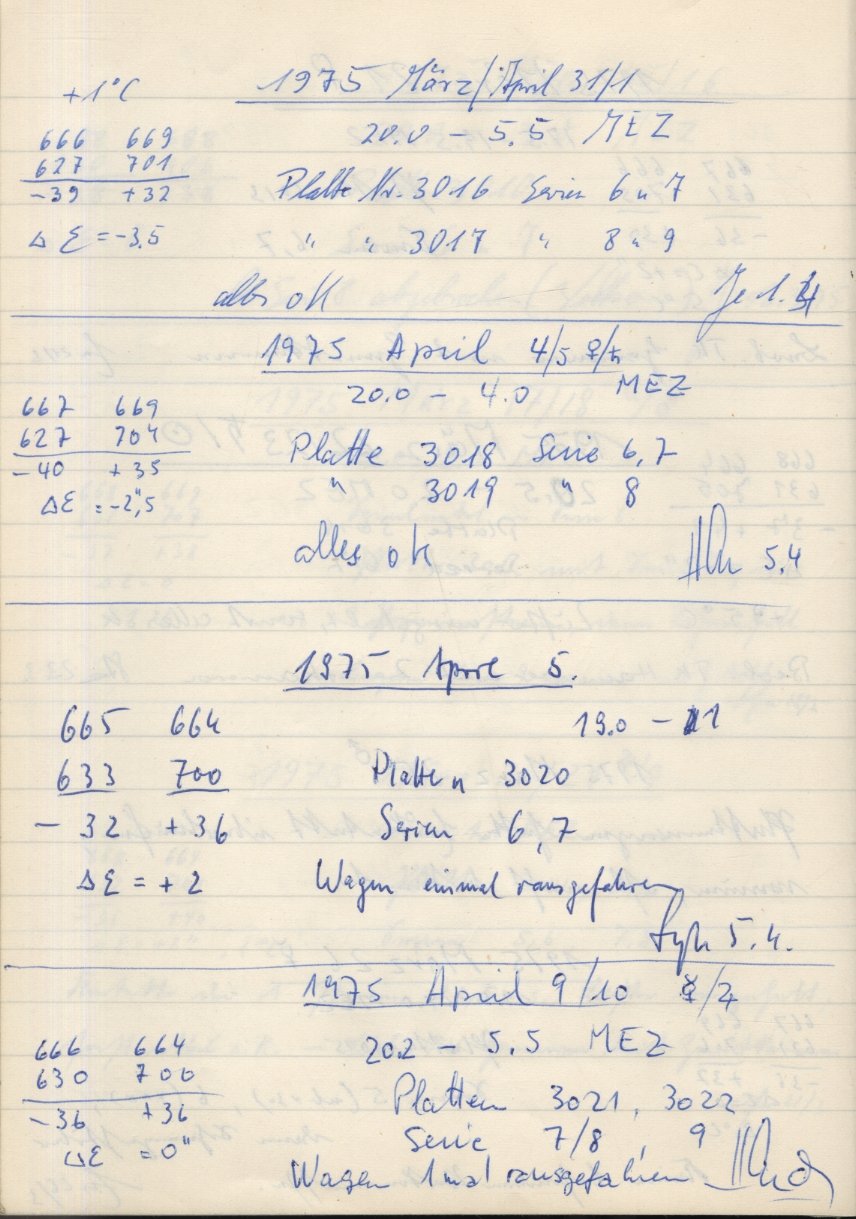 +1°C 1975 März/April 31/1
666 669 20.0 – 5.5 MEZ
627 701
-39 +32 Platte Nr. 3016 Serien 6 u 7
Δ Σ = -3.5 " " 3017 " 8 u 9
alles ok Je 1.4
1975 April 4/5 ♀/♄
667 669 20.0 – 4.0 MEZ
627 704 Platte 3018 Serie 6,7
-40 +35 " 3019 " 8
ΔΣ = -2",5
alles ok 5.4
1975 April 5.
665 664 19.0 – 1
633 700 Platten 3020
- 32 +36 Serien 6,7
ΔΣ = +2 Wagen einmal rausgefahren
5.4.
1975 April 9/10 ☿/♃
666 664 20.2 – 5.5 MEZ
630 700 Platten 3021, 3022
-36 +36 Serie 7/8, 9
ΔΣ = 0"
Wagen 1mal rausgefahren